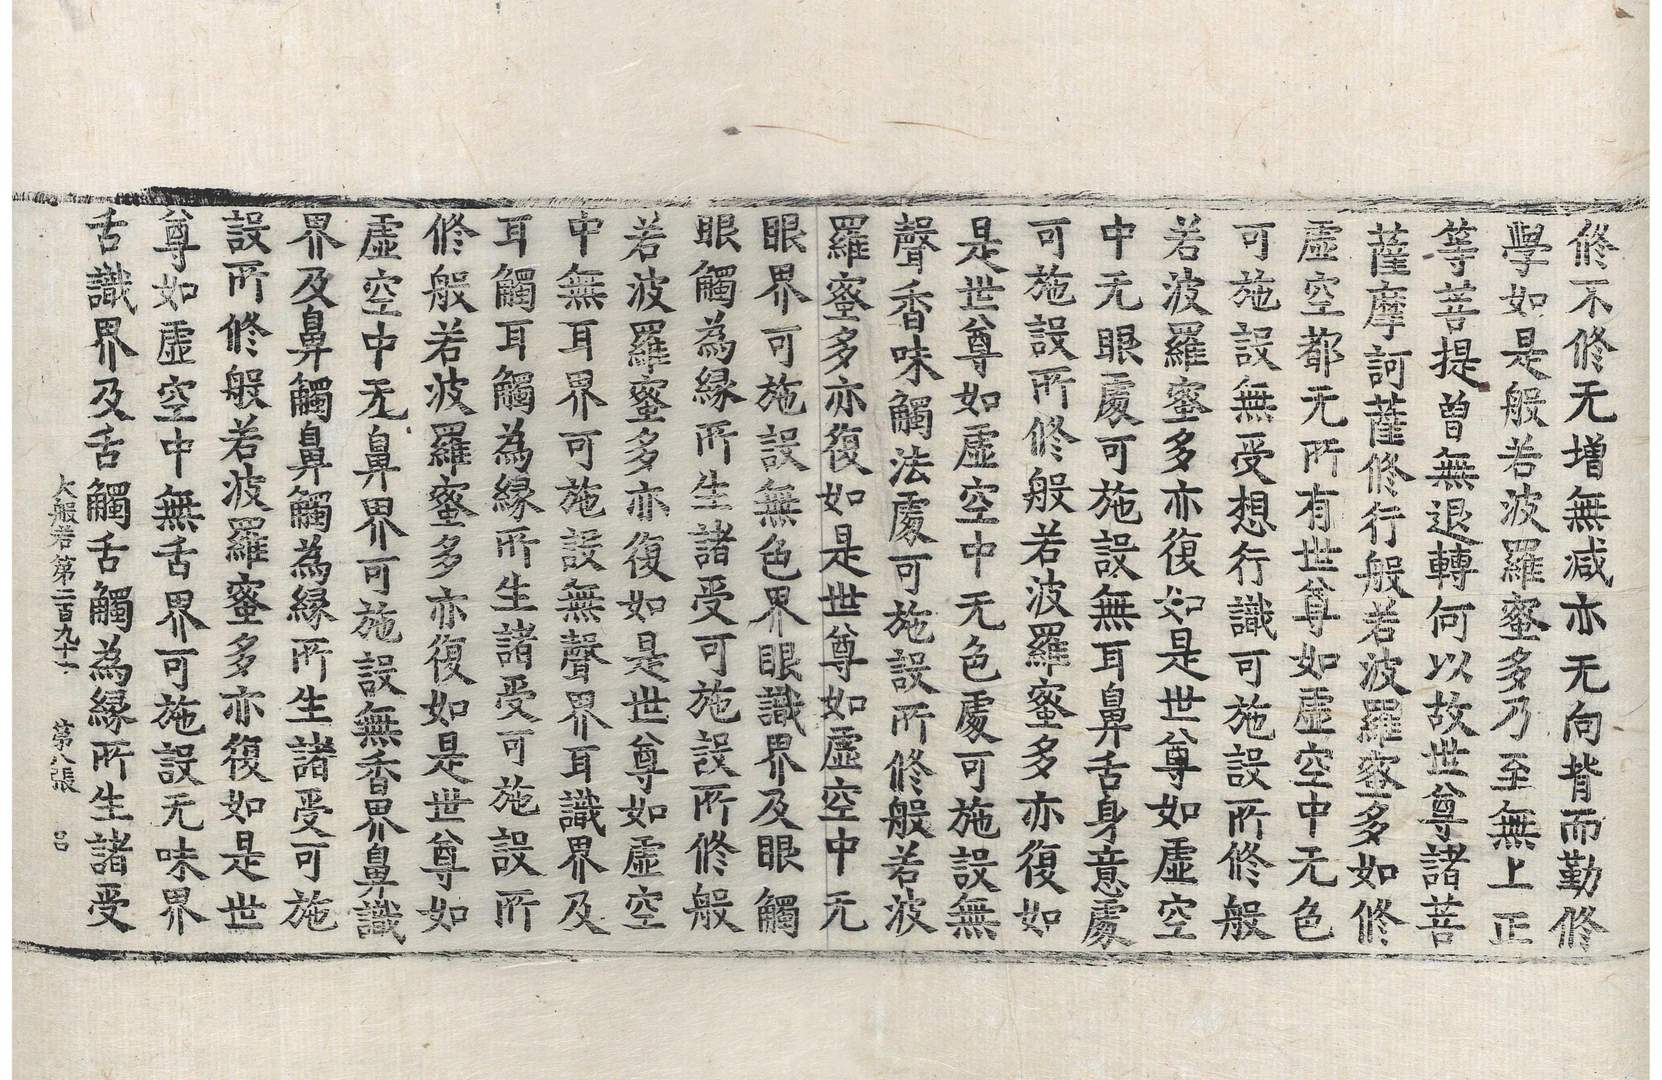 修不修无增無減亦无向背而勤修
學如是般若波羅蜜多乃至無上正
等菩提曾無退轉何以故世尊諸菩
薩摩訶薩修行般若波羅蜜多如修
虛空都无所有世尊如虛空中无色
可施設無受想行識可施設所修般
若波羅蜜多亦復如是世尊如虛空
中无眼處可施設無耳鼻舌身意處
可施設所修般若波羅蜜多亦復如
是世尊如虛空中无色處可施設無
聲香味觸法處可施設所修般若波
羅蜜多亦復如是世尊如虛空中无
眼界可施設無色界眼識界及眼觸
眼觸為緣所生諸受可施設所修般
若波羅蜜多亦復如是世尊如虛空
中無耳界可施設無聲界耳識界及
耳觸耳觸為緣所生諸受可施設所
修般若波羅蜜多亦復如是世尊如
虛空中无鼻界可施設無香界鼻識
界及鼻觸鼻觸為緣所生諸受可施
設所修般若波羅蜜多亦復如是世
尊如虛空中無舌界可施設无味界
舌識界及舌觸舌觸為緣所生諸受
大般若第二百九十一 第八張 呂